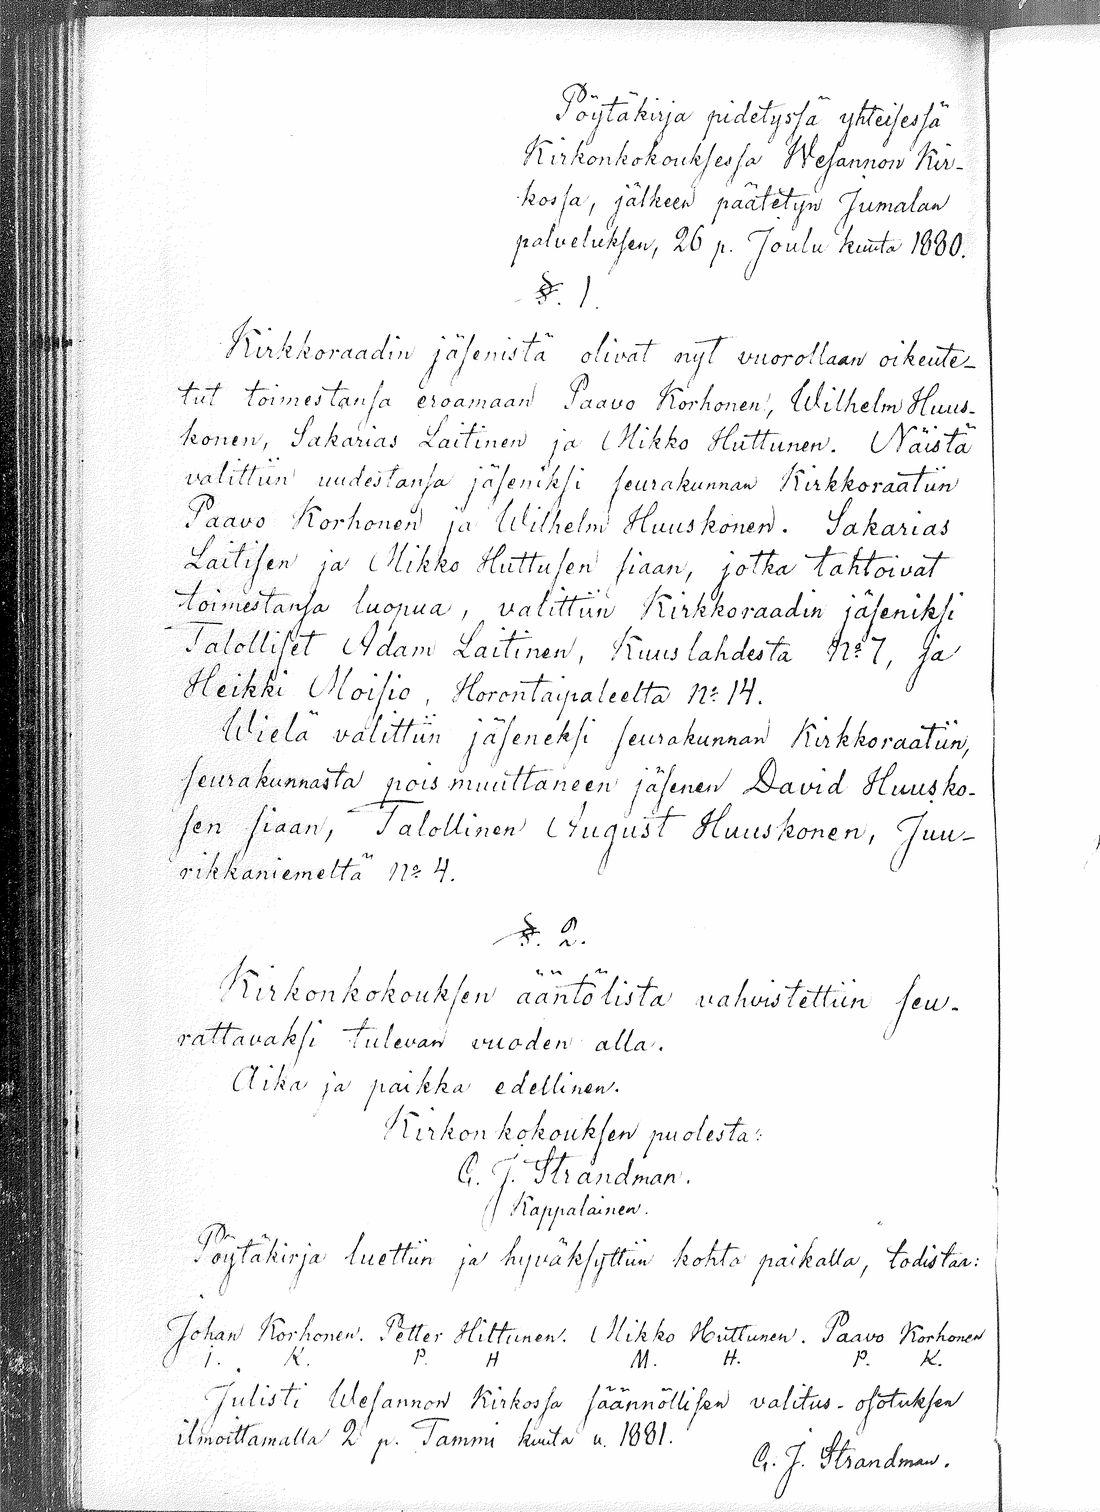 Pöytäkirja pidetyssä yhteisessä
Kirkonkokouksessa Wesannon Kir-
kossa, jälkeen päätetyn Jumalan
palveluksen, 26 p. Joulu kuuta 1880.
§. 1.
Kirkkoraadin jäsenistä olivat nyt vuorollaan oikeute-
tut toimestansa eroamaan Paavo Korhonen, Wilhelm Huus-
konen, Sakarias Laitinen ja Mikko Huttunen. Näistä
valittiin uudestansa jäseniksi seurakunnan Kirkkoraatiin
Paavo Korhonen ja Wilhelm Huuskonen. Sakarias
Laitisen ja Mikko Huttusen siaan, jotka tahtoivat
toimestansa luopua, valittiin Kirkkoraadin jäseniksi
Talolliset Adam Laitinen, Kuuslahdesta No 7, ja
Heikki Moisio, Horontaipaleelta No 14.
Wielä valittiin jäseneksi seurakunnan Kirkkoraatiin,
seurakunnasta pois muuttaneen jäsenen David Huusko-
sen siaan, Talollinen August Huuskonen, Juu-
rikkaniemeltä No 4.
§. 2.
Kirkonkokouksen ääntölista vahvistettiin seu-
rattavaksi tulevan vuoden alla.
Aika ja paikka edellinen.
Kirkonkokouksen puolesta:
G. J. Strandman.
Kappalainen.
Pöytäkirja luettiin ja hyväksyttiin kohta paikalla, todistaa:
Johan Korhonen. Petter Hiltunen. Mikko Huttunen. Paavo Korhonen
J. K. P. H M. H. P. K.
Julisti Wesannon Kirkossa säännöllisen valitus-osotuksen
ilmoittamalla 2 p. Tammi kuuta v. 1881.
G. J. Strandman.